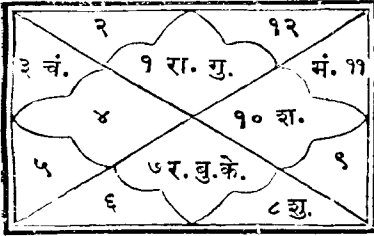 २ १२
३ चं. १ रा. गु. मं. ११
४ १० श.
५ ७ र. बु. के. ९
६ ८ शु.